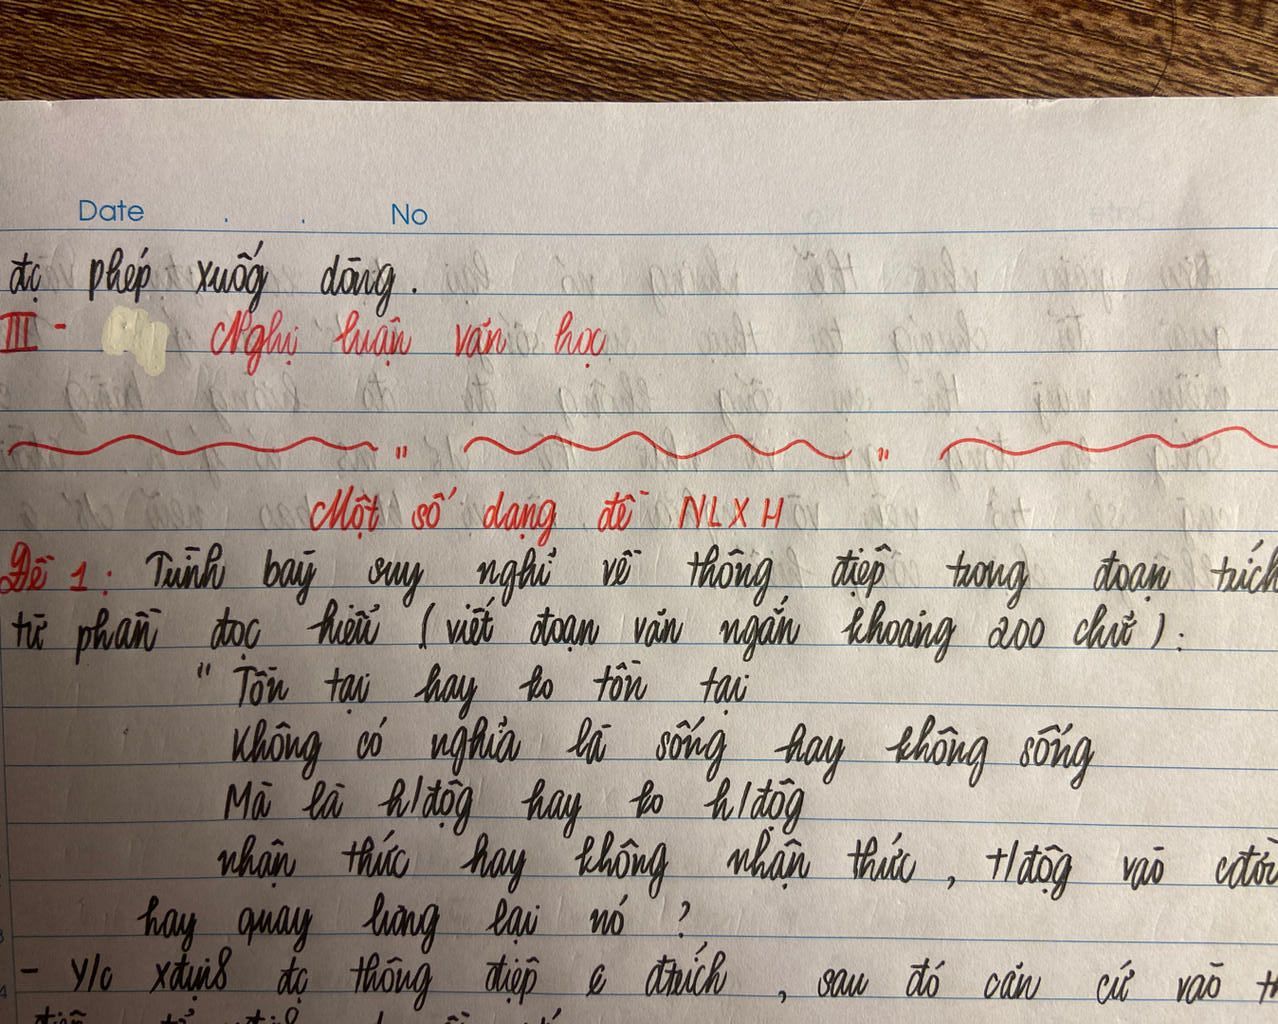 Date . . No
đc phép xuốg dòng.
III - Nghị luận văn học
" "
Một số dạng đề NLXH
Đề 1: Trình bày suy nghĩ về thông điệp trong đoạn trích
từ phần đọc hiểu (viết đoạn văn ngắn khoảng 200 chữ):
" Tồn tại hay ko tồn tại
Không có nghĩa là sống hay không sống
Mà là h/độg hay ko h/độg
nhận thức hay không nhận thức, t/độg vào cđời
hay quay lưng lại nó ?
- y/c xđịnh đc thông điệp đtrích, sau đó căn cứ vào